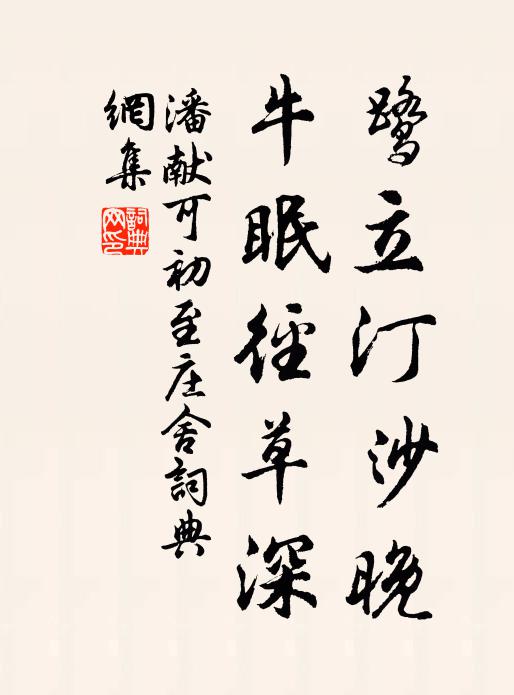 鹭立汀沙晚
牛眠徑草深
潘献可初至庄舍詞典
網集
詞典
网印